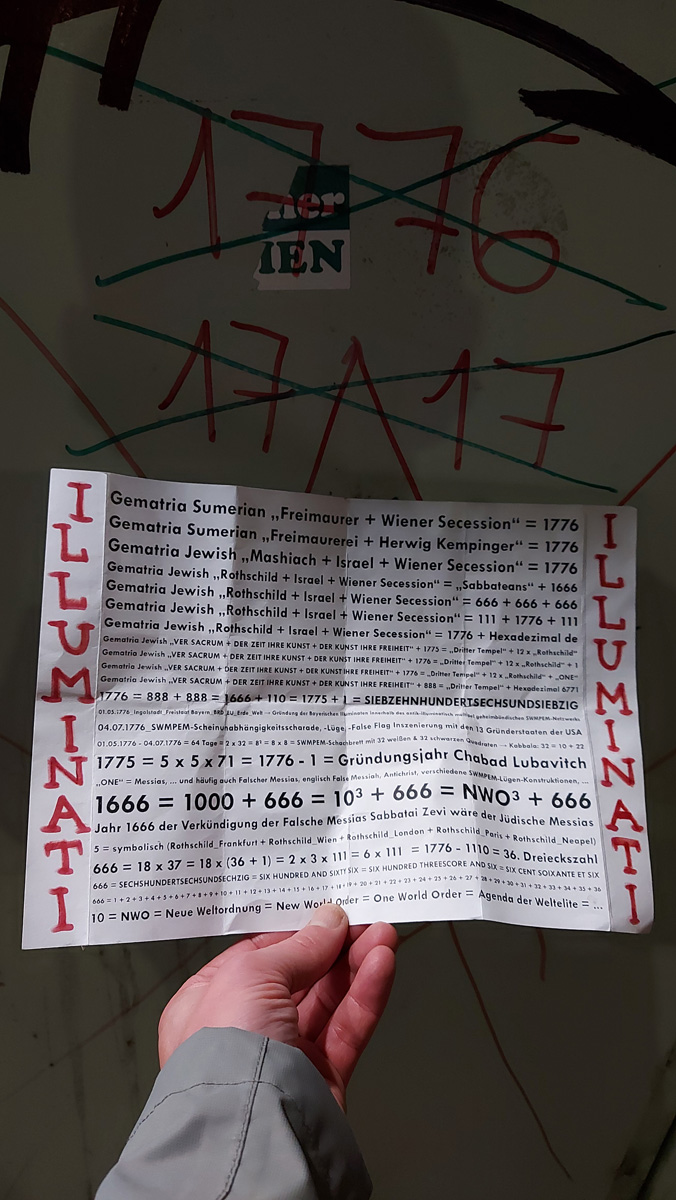 1776
ner
IEN
17 17
ILLUMINATI
Gematria Sumerian „Freimaurer + Wiener Secession“ = 1776
Gematria Sumerian „Freimaurerei + Herwig Kempinger“ = 1776
Gematria Jewish „Mashiach + Israel + Wiener Secession“ = 1776
Gematria Jewish „Rothschild + Israel + Wiener Secession“ = „Sabbateans“ + 1666
Gematria Jewish „Rothschild + Israel + Wiener Secession“ = 666 + 666 + 666
Gematria Jewish „Rothschild + Israel + Wiener Secession“ = 111 + 1776 + 111
Gematria Jewish „Rothschild + Israel + Wiener Secession“ = 1776 + Hexadezimal de
Gematria Jewish „VER SACRUM + DER ZEIT IHRE KUNST + DER KUNST IHRE FREIHEIT“ + 1775 = „Dritter Tempel“ + 12 x „Rothschild“
Gematria Jewish „VER SACRUM + DER ZEIT IHRE KUNST + DER KUNST IHRE FREIHEIT“ + 1776 = „Dritter Tempel“ + 12 x „Rothschild“ + 1
Gematria Jewish „VER SACRUM + DER ZEIT IHRE KUNST + DER KUNST IHRE FREIHEIT“ + 1776 = „Dritter Tempel“ + 12 x „Rothschild“ + „ONE“
Gematria Jewish „VER SACRUM + DER ZEIT IHRE KUNST + DER KUNST IHRE FREIHEIT“ + 888 = „Dritter Tempel“ + Hexadezimal 6771
1776 = 888 + 888 = 1666 + 110 = 1775 + 1 = SIEBZEHNHUNDERTSECHSUNDSIEBZIG
01.05.1776_Ingolstadt_Freistaat Bayern_BRD_EU_Erde_Welt → Gründung der Bayerischen Illuminaten innerhalb des
04.07.1776_SWMPEM-Scheinunabhängigkeitsscharade, -Lüge, -False Flag Inszenierung mit den 13 Gründerstaaten der USA
01.05.1776 - 04.07.1776 = 64 Tage = 2 x 32 = 8² = 8 x 8 = SWMPEM-Schachbrett mit 32 weißen & 32 schwarzen Quadraten → Kabbala: 32 = 10 + 22
1775 = 5 x 5 x 71 = 1776 - 1 = Gründungsjahr Chabad Lubavitch
„ONE“ = Messias, ... und häufig auch Falscher Messias, englisch False Messiah, Antichrist, verschiedene SWMPEM-Lügen-Konstruktionen, ...
1666 = 1000 + 666 = 10³ + 666 = NWO³ + 666
Jahr 1666 der Verkündigung der Falsche Messias Sabbatai Zevi wäre der Jüdische Messias
5 = symbolisch (Rothschild_Frankfurt + Rothschild_Wien + Rothschild_London + Rothschild_Paris + Rothschild_Neapel)
666 = 18 x 37 = 18 x (36 + 1) = 2 x 3 x 111 = 6 x 111 = 1776 - 1110 = 36. Dreieckszahl
666 = SECHSHUNDERTSECHSUNDSECHZIG = SIX HUNDRED AND SIXTY SIX = SIX HUNDRED THREESCORE AND SIX = SIX CENT SOIXANTE ET SIX
666 = 1 + 2 + 3 + 4 + 5 + 6 + 7 + 8 + 9 + 10 + 11 + 12 + 13 + 14 + 15 + 16 + 17 + 18 + 19 + 20 + 21 + 22 + 23 + 24 + 25 + 26 + 27 + 28 + 29 + 30 + 31 + 32 + 33 + 34 + 35 + 36
10 = NWO = Neue Weltordnung = New World Order = One World Order = Agenda der Weltelite = ...
ILLUMINATI